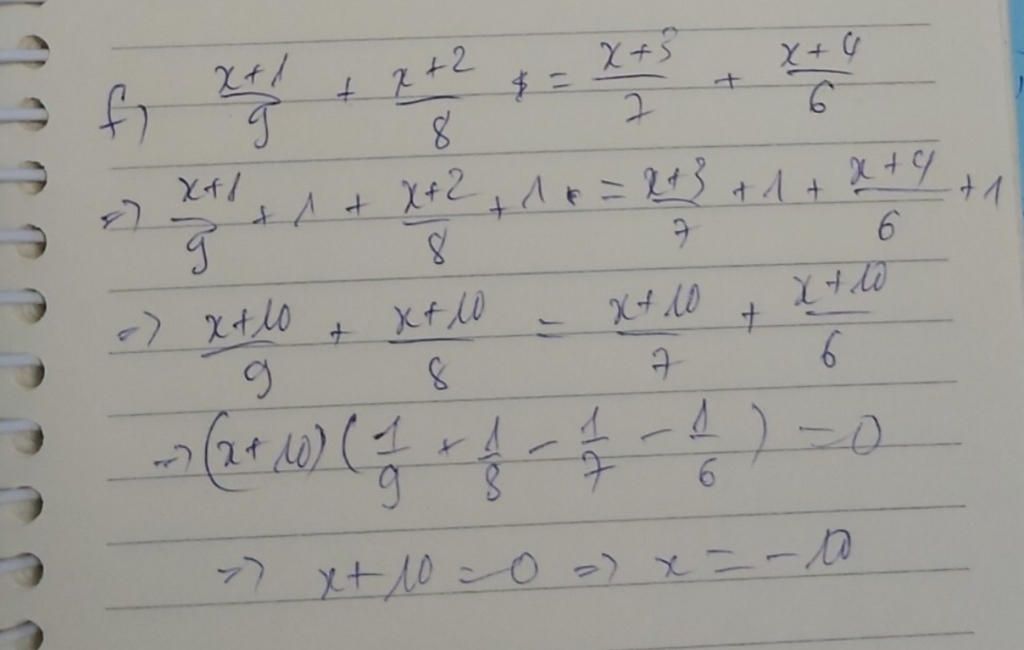 f) \frac{x+1}{9} + \frac{x+2}{8} = \frac{x+3}{7} + \frac{x+4}{6}
=> \frac{x+1}{9} + 1 + \frac{x+2}{8} + 1 = \frac{x+3}{7} + 1 + \frac{x+4}{6} + 1
=> \frac{x+10}{9} + \frac{x+10}{8} = \frac{x+10}{7} + \frac{x+10}{6}
=> (x+10)(\frac{1}{9} + \frac{1}{8} - \frac{1}{7} - \frac{1}{6}) = 0
=> x+10 = 0 => x = -10